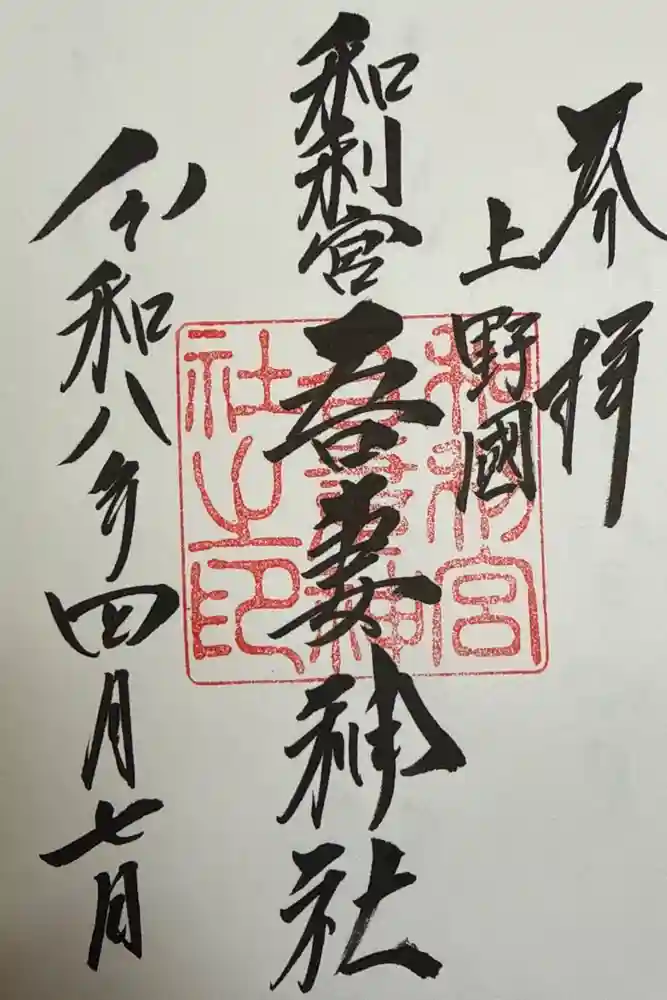 奉拝
上野國
和利宮吾妻神社
令和八年四月七日
和利宮
吾妻神
社之印